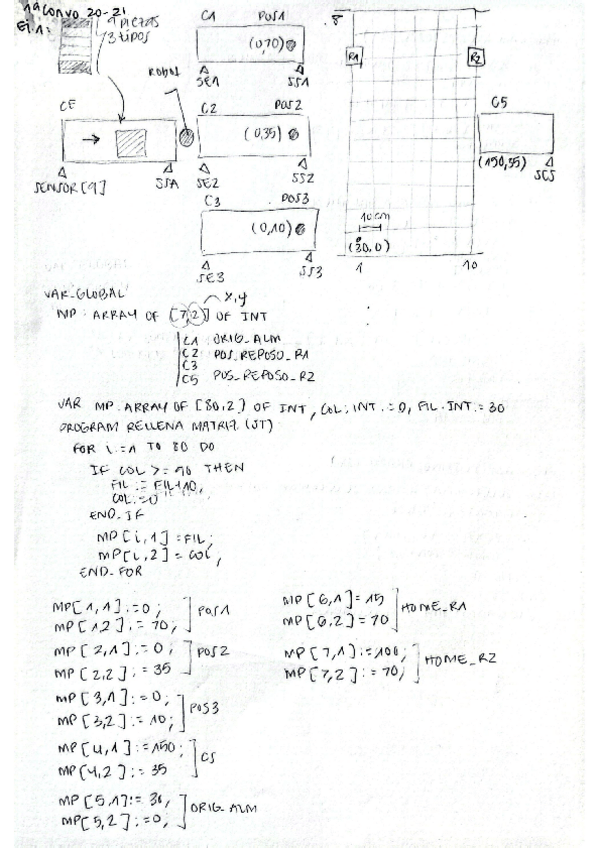 1ª CONVO 20-21
EJ.1:
9 PIEZAS
3 TIPOS
C1 POS1
(0,70)
SE1 SS1
8
R1
R2
ROBOT
CE
C2 POS2
(0,35)
SENSOR[9] SSA
SE2 SS2
C5
(150,55)
SC5
C3 POS3
(0,10)
SE3 SS3
10 cm
(30,0)
1 10
VAR_GLOBAL
X,Y
MP: ARRAY OF [7,2] OF INT
C1 ORIG_ALM
C2 POS_REPOSO_R1
C3
C5 POS_REPOSO_R2
VAR MP ARRAY OF [80,2] OF INT, COL: INT:=0, FIL.INT:=30
PROGRAM RELLENA MATRIZ (ST)
FOR i:=1 TO 80 DO
IF COL >= 90 THEN
FIL := FIL+10;
COL:=0
END_IF
MP[i,1]:=FIL;
MP[i,2]=COL;
END-FOR
MP[1,1]:=0;
MP[1,2]:=70; POS1
MP[2,1]:=0;
MP[2,2]:=35 POS2
MP[3,1]:=0;
MP[3,2]:=10; POS3
MP[4,1]:=150;
MP[4,2]:=35 C5
MP[5,1]:=30,
MP[5,2]:=0; ORIG_ALM
MP[6,1]=15
MP[6,2]=70 HOME_R1
MP[7,1]:=100;
MP[7,2]:=70; HOME_R2